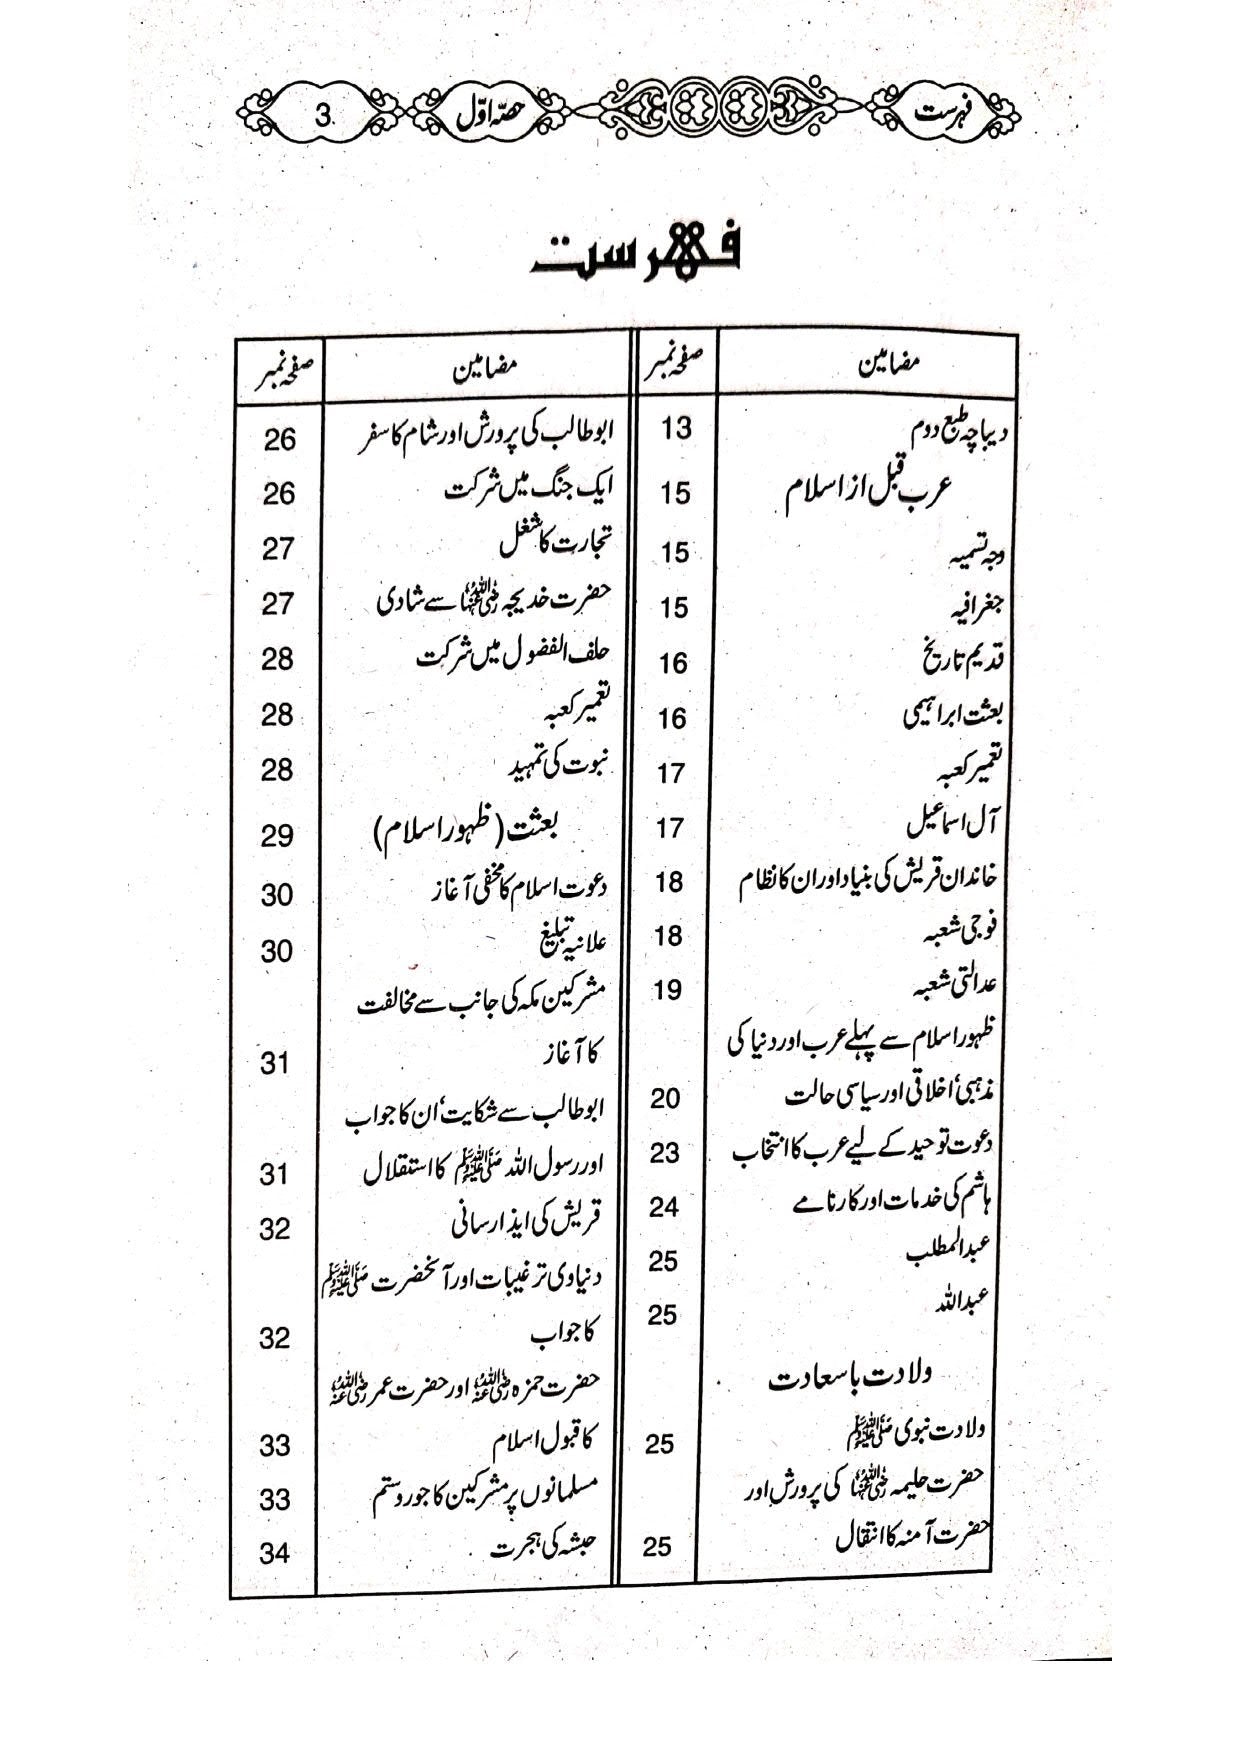 فہرست حصّہ اوّل 3
فہرست
مضامین صفحہ نمبر
دیباچہ طبع دوم 13
عرب قبل از اسلام 15
وجہ تسمیہ 15
جغرافیہ 15
قدیم تاریخ 16
بعثت ابراہیمی 16
تعمیر کعبہ 17
آل اسماعیل 17
خاندان قریش کی بنیاد اور ان کا نظام 18
فوجی شعبہ 18
عدالتی شعبہ 19
ظہور اسلام سے پہلے عرب اور دنیا کی
مذہبی، اخلاقی اور سیاسی حالت 20
دعوت توحید کے لیے عرب کا انتخاب 23
ہاشم کی خدمات اور کارنامے 24
عبدالمطلب 25
عبداللہ 25
ولادت باسعادت
ولادت نبوی ﷺ 25
حضرت حلیمہ رضی اللہ عنہا کی پرورش اور
حضرت آمنہ کا انتقال 25
مضامین صفحہ نمبر
ابو طالب کی پرورش اور شام کا سفر 26
ایک جنگ میں شرکت 26
تجارت کا شغل 27
حضرت خدیجہ رضی اللہ عنہا سے شادی 27
حلف الفضول میں شرکت 28
تعمیر کعبہ 28
نبوت کی تمہید 28
بعثت (ظہور اسلام) 29
دعوت اسلام کا مخفی آغاز 30
علانیہ تبلیغ 30
مشرکین مکہ کی جانب سے مخالفت
کا آغاز 31
ابو طالب سے شکایت، ان کا جواب
اور رسول اللہ ﷺ کا استقلال 31
قریش کی ایذا رسانی 32
دنیاوی ترغیبات اور آنحضرت ﷺ
کا جواب 32
حضرت حمزہ رضی اللہ عنہ اور حضرت عمر رضی اللہ عنہ
کا قبول اسلام 33
مسلمانوں پر مشرکین کا جور و ستم 33
حبشہ کی ہجرت 34